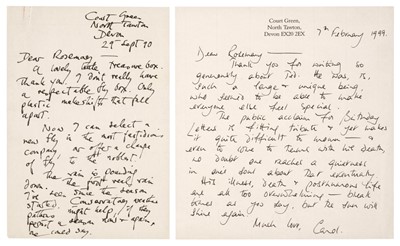 Court Green
North Tawton
Devon
29 Sept 90
Dear Rosemary
A lovely little treasure box.
Thank you. I don't really have
a respectable fly box. Only
plastic makeshifts that fall
apart.
Now I can select a
new fly in the most fastidious
company, or offer a choice
of fly, to the noblest!
The rain is pouring
down — the first real rain
I've seen since the season
started. Conservatory
might help, if they
season again,

Court Green,
North Tawton,
Devon EX20 2EX
7th February 1999.
Dear Rosemary —
Thank you for writing so
generously about Ted. He was, is,
such a large & unique being,
who seemed to be able to make
everyone else feel special.
The public acclaim for Birthday
Letters is fitting tribute & yet makes
it quite difficult to mourn — or
even to come to terms with his death,
no doubt one reaches a quietness
in one's soul about that eventually.
His illness, death & posthumous life
are all too overwhelming — bleak
times as yet, but the sun will
shine again.
Much love, Carol.